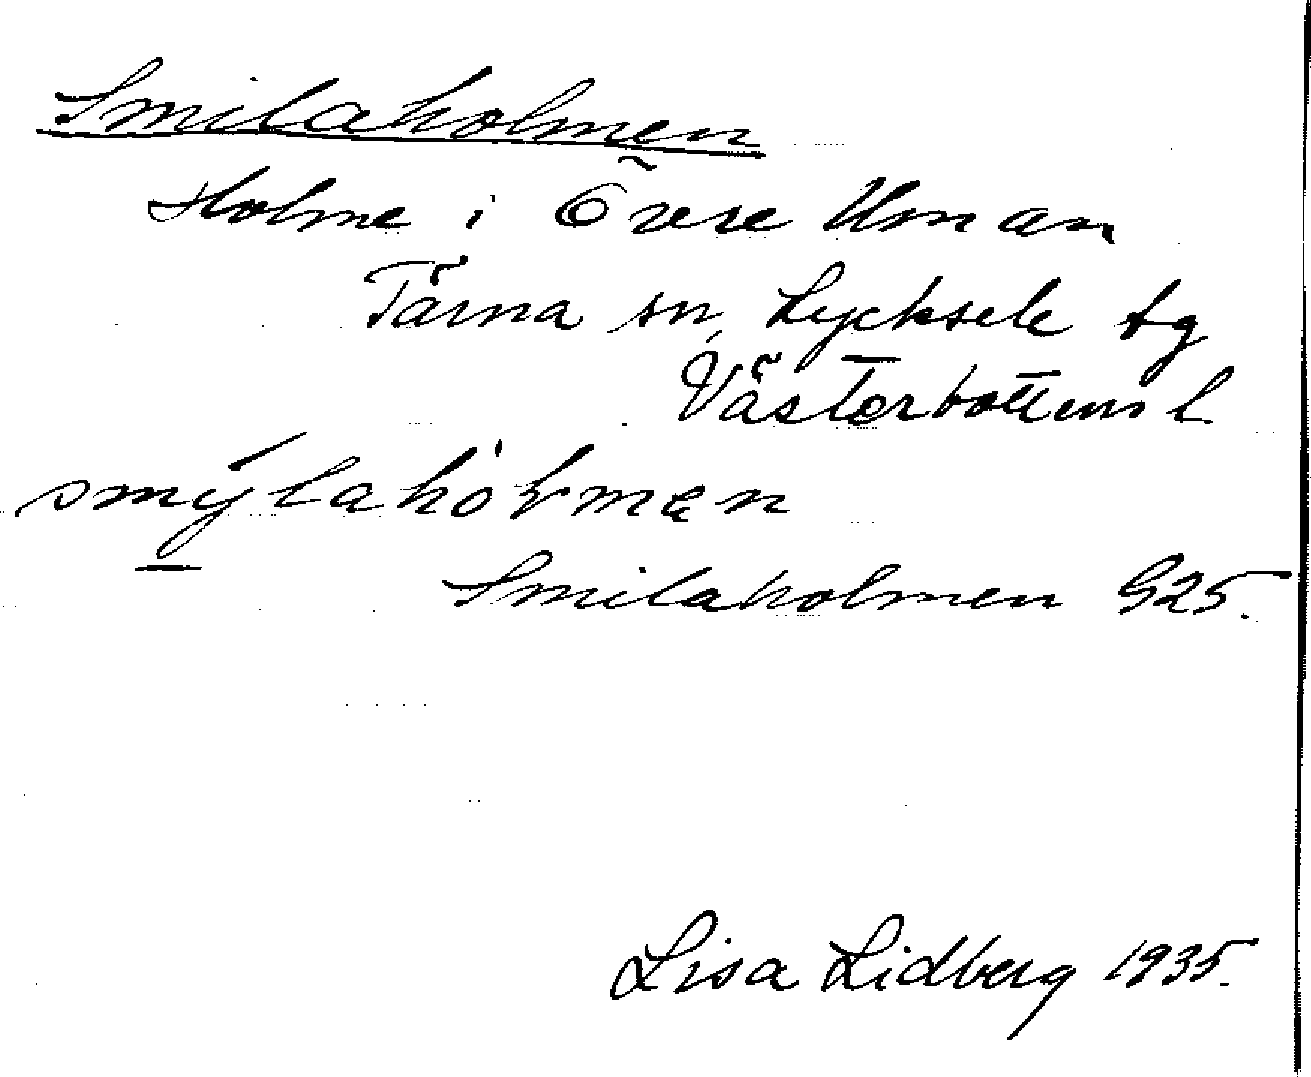 Smilaholmen
Holme i Övre Uman
Tärna sn, Lycksele tg
Västerbottens l
smýlahòlmæn
Smilaholmen G25.
Lisa Lidberg 1935.